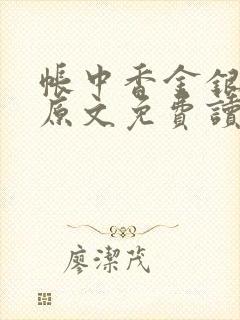 帳中香金銀
原文免費讀
廖潔茂